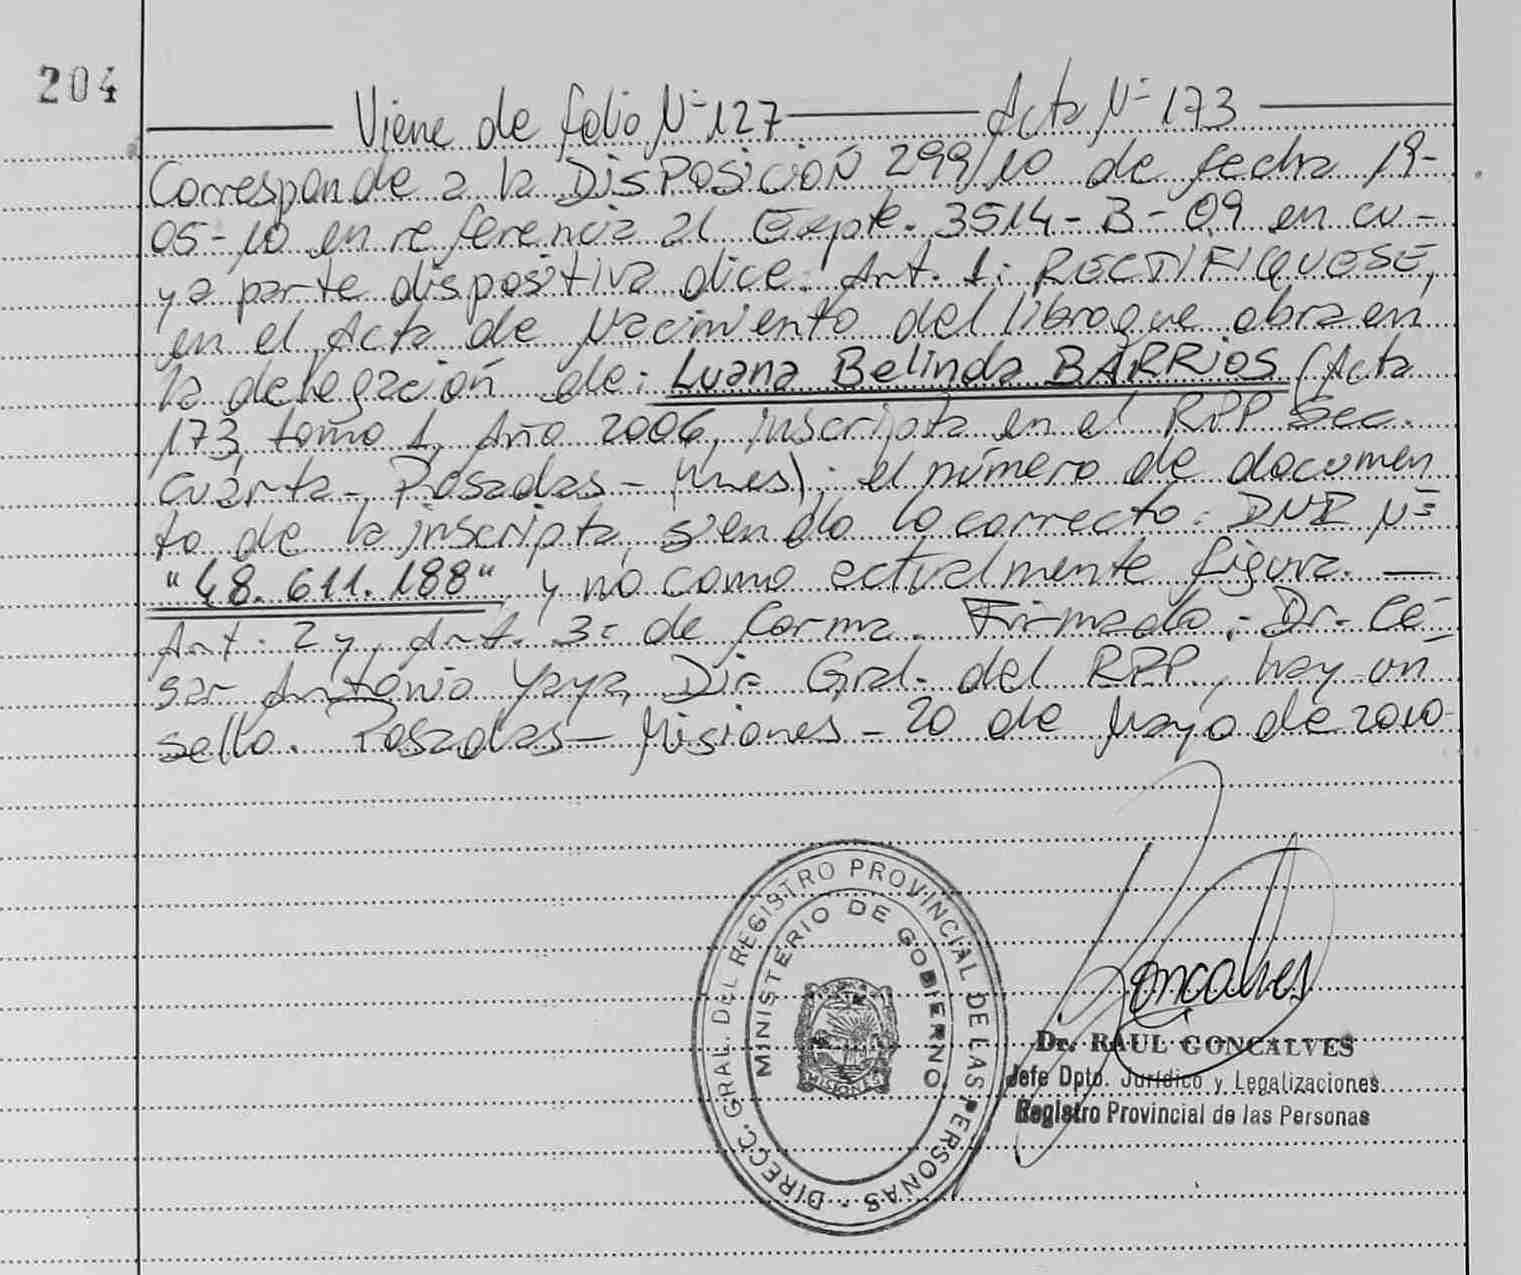 204
Viene de folio Nº 127 Acta Nº 173
Corresponde a la DISPOSICIÓN 299/10 de fecha 19-
05-10 en referencia al Expte. 3514-B-09 en cu-
ya parte dispositiva dice: Art. 1: RECTIFIQUESE,
en el Acta de Nacimiento del libro que obra en
la delegación de: Luana Belinda BARRIOS (Acta
173, tomo 1, Año 2006, inscripta en el RPP Sec.
cuarta - Posadas - Mnes); el número de documen
to de la inscripta, siendo lo correcto: DNI Nº
"48.611.188", y no como actualmente figura. —
Art. 2 y Art. 3: de forma. Firmado: Dr. Cé-
sar Antonio Yaya, Dir. Gral. del RPP., hay un
sello. Posadas - Misiones - 20 de Mayo de 2010-
DIRECC. GRAL. DEL REGISTRO PROVINCIAL DE LAS PERSONAS
MINISTERIO DE GOBIERNO
MISIONES
Goncalves
Dr. RAUL GONCALVES
Jefe Dpto. Jurídico y Legalizaciones
Registro Provincial de las Personas